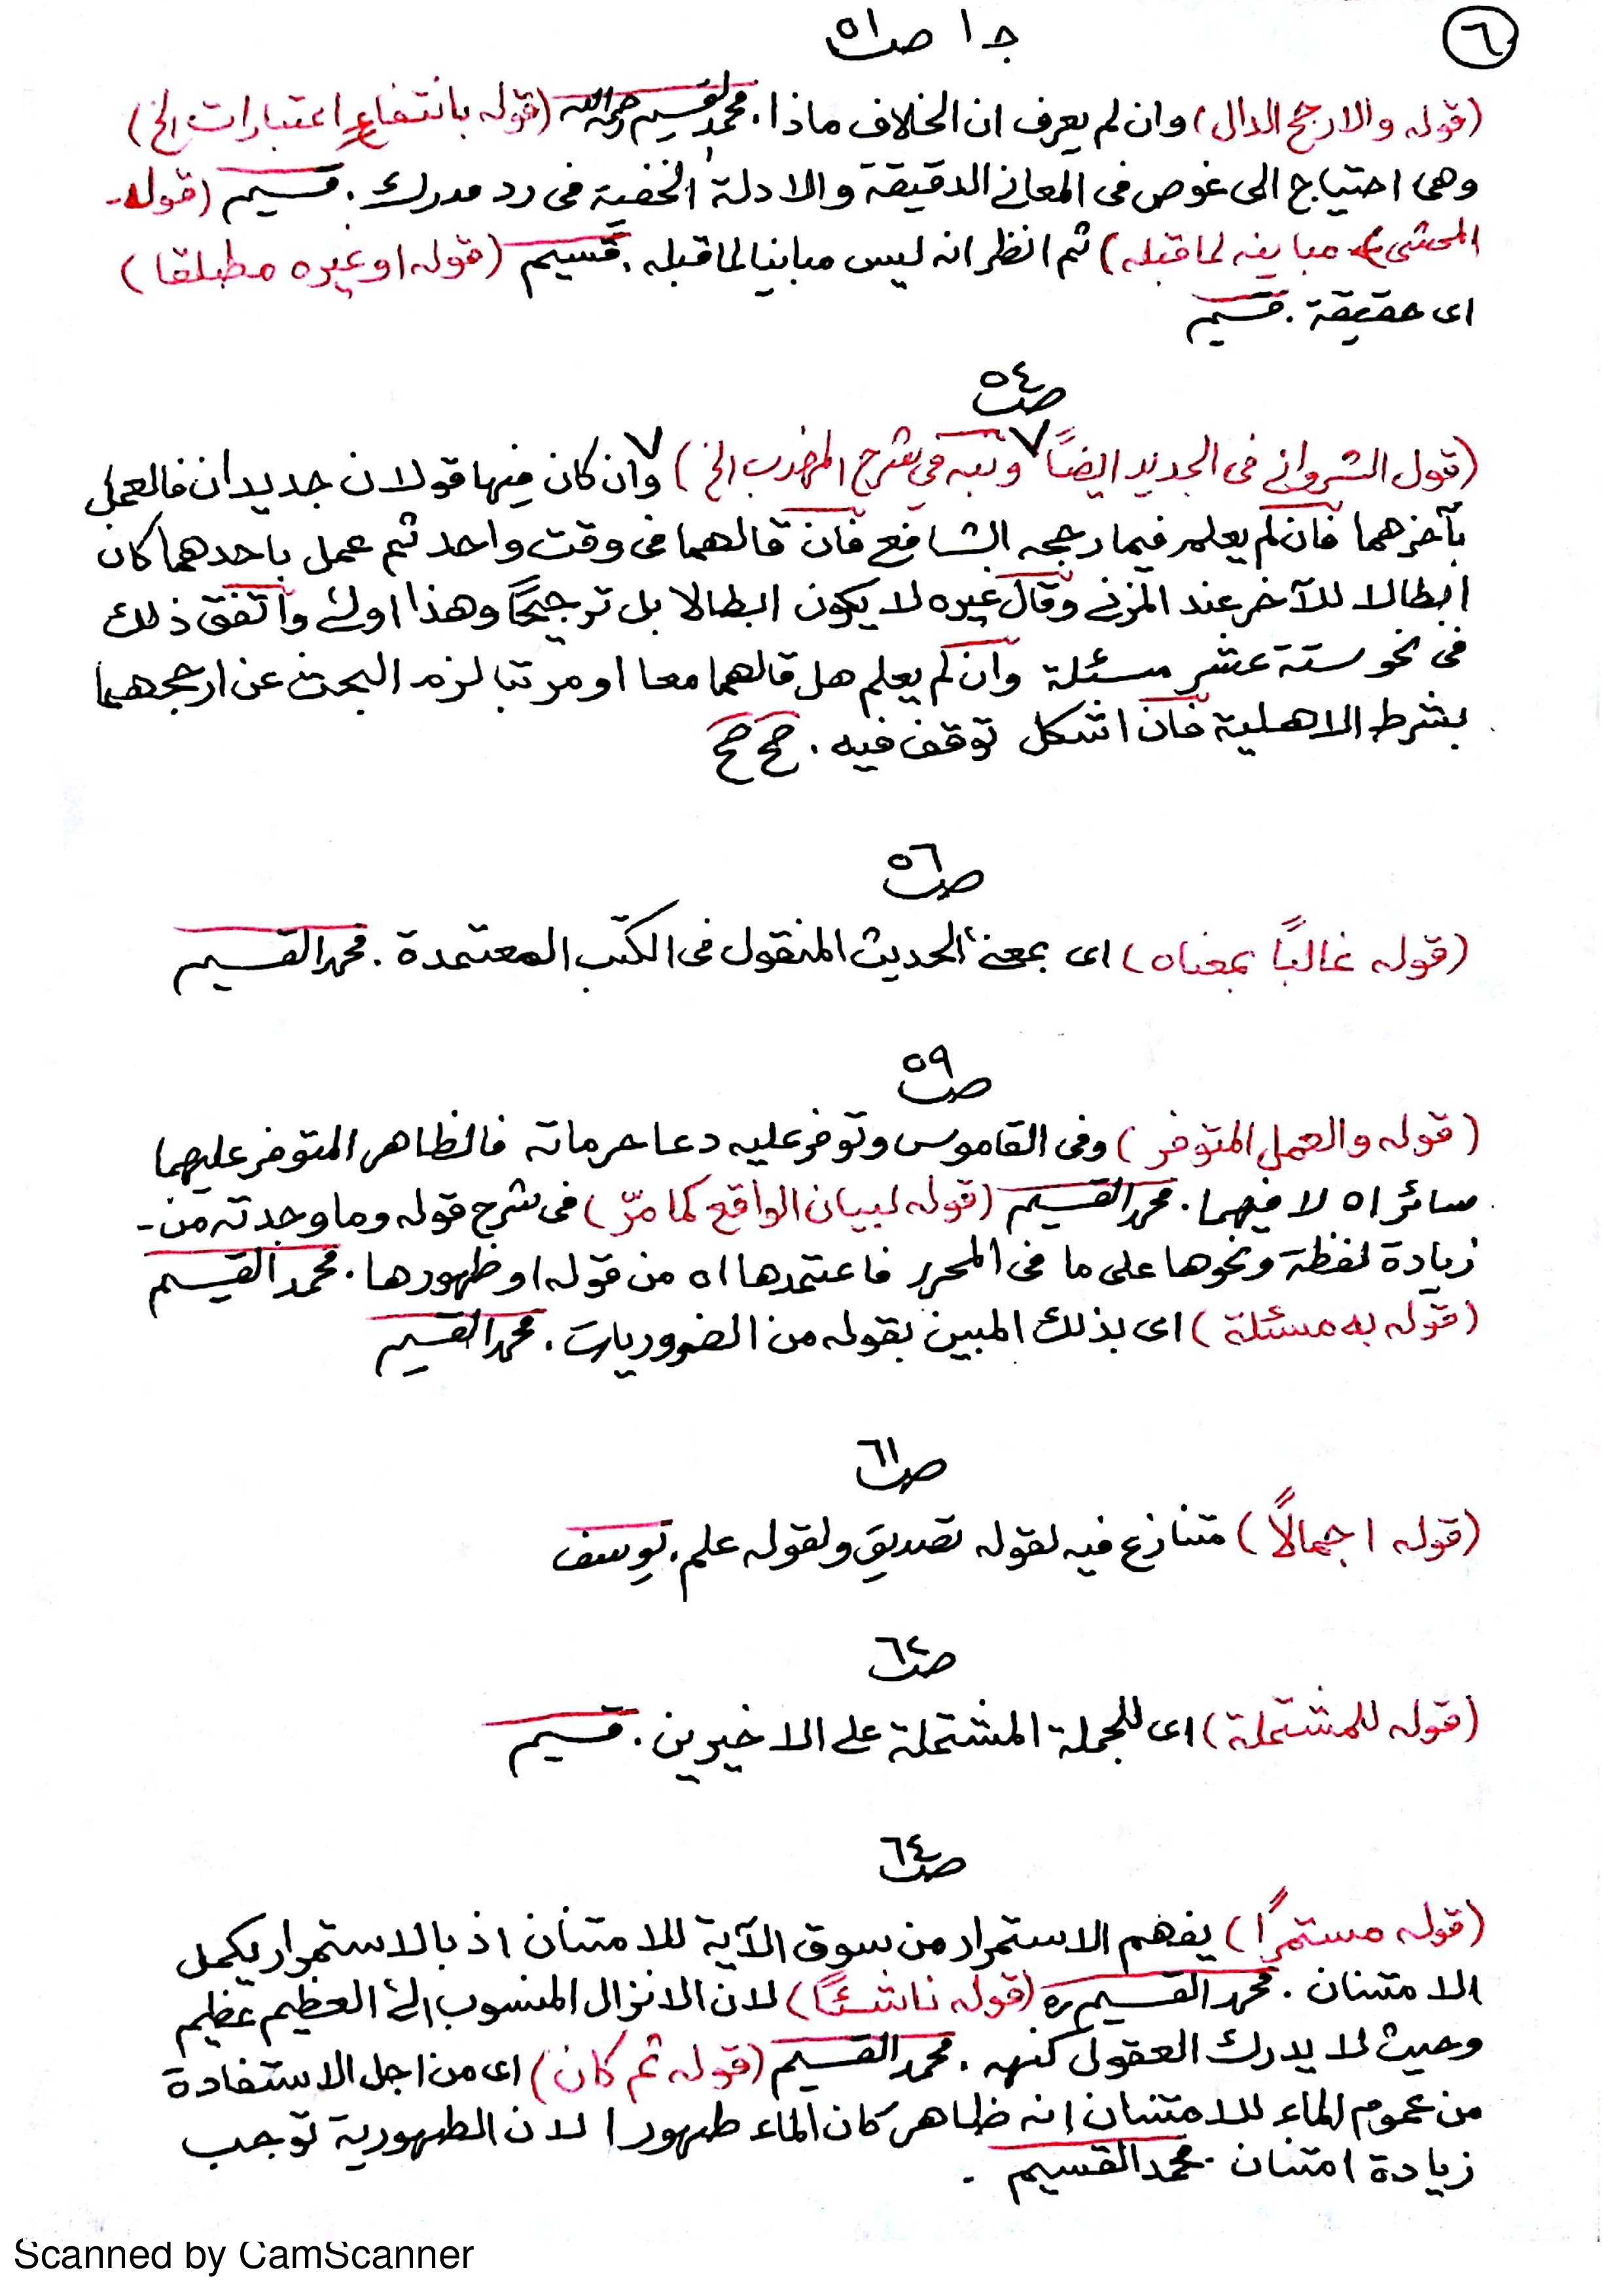 ٦
جـ ١ صـ ٥١
(قوله والارجح الدال) وان لم يعرف ان الخلاف ماذا. محمد القسيم رحمه الله (قوله بانتفاع اعتبارات الخ)
وهى احتياج الى غوص فى المعانى الدقيقة والادلة الخفية فى رد مدرك. قسيم (قوله
المحشى مباينه لما قبله) ثم انظر انه ليس مباينا لما قبله. قسيم (قوله او غيره مطلقا)
اى حقيقة. قسيم
صـ ٥٤
(قول الشروانى فى الجديد ايضاً ٧ ونبه فى شرح المهذب الخ) ٧ وان كان فيها قولان جديدان فالعمل
بآخرهما فان لم يعلم فيما رجحه الشافع فان قالهما فى وقت واحد ثم عمل باحدهما كان
ابطالا للآخر عند المزنى وقال غيره لا يكون ابطالا بل ترجيحًا وهذا اولى واتفق ذلك
فى نحو ستة عشر مسئلة وان لم يعلم هل قالهما معا او مرتبا لزم البحث عن ارجحهما
بشرط الاهلية فان اشكل توقف فيه. صح صح
صـ ٥٦
(قوله غالبًا بمعناه) اى بمعنى الحديث المنقول فى الكتب المعتمدة. محمد القسيم
صـ ٥٩
(قوله والعمل المتوفر) وفى القاموس وتوفر عليه دعا حرماته فالظاهر المتوفر عليهما
سائراه لا فيهما. محمد القسيم (قوله لبيان الواقع كما مرّ) فى شرح قوله وما وجدته من
زيادة لفظة ونحوها على ما فى المحرر فاعتمدها اه من قوله او ظهورها. محمد القسيم
(قوله به مسئلة) اى بذلك المبين بقوله من الضروريات. محمد القسيم
صـ ٦١
(قوله اجمالًا) متنازع فيه لقوله تصديق ولقوله علم. يوسف
صـ ٦٢
(قوله للمشتملة) اى للجملة المشتملة على الاخيرين. قسيم
صـ ٦٤
(قوله مستمرًا) يفهم الاستمرار من سوق الآية للامتنان اذ بالاستمرار يكمل
الامتنان. محمد القسيم ره (قوله ناشئًا) لان الانزال المنسوب الى العظيم عظيم
وحيث لا يدرك العقول كنهه. محمد القسيم (قوله ثم كان) اى من اجل الاستفادة
من عموم الماء للامتنان انه ظاهر كان الماء طهورا لان الطهورية توجب
زيادة امتنان. محمد القسيم.
Scanned by CamScanner